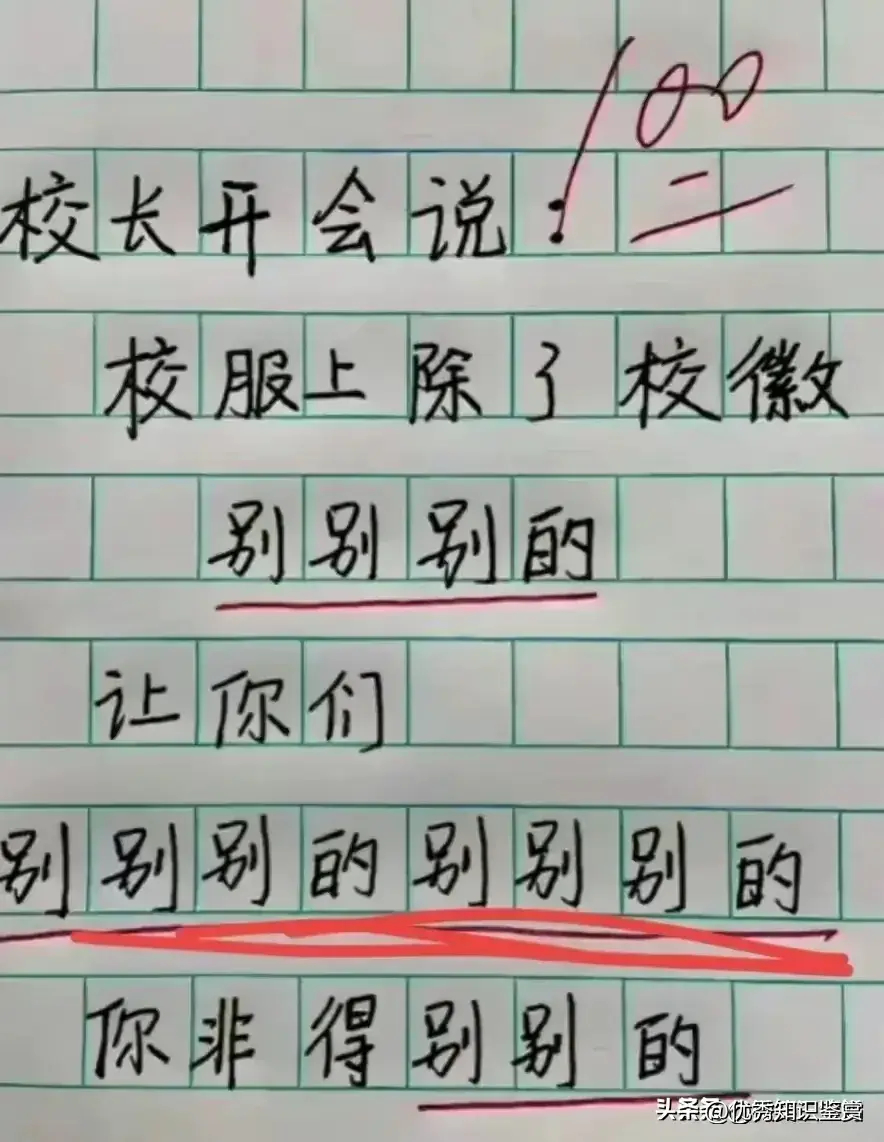 100
校长开会说：
校服上除了校徽
别别别的
让你们
别别别的别别别的
你非得别别的
头条@优秀知识鉴赏